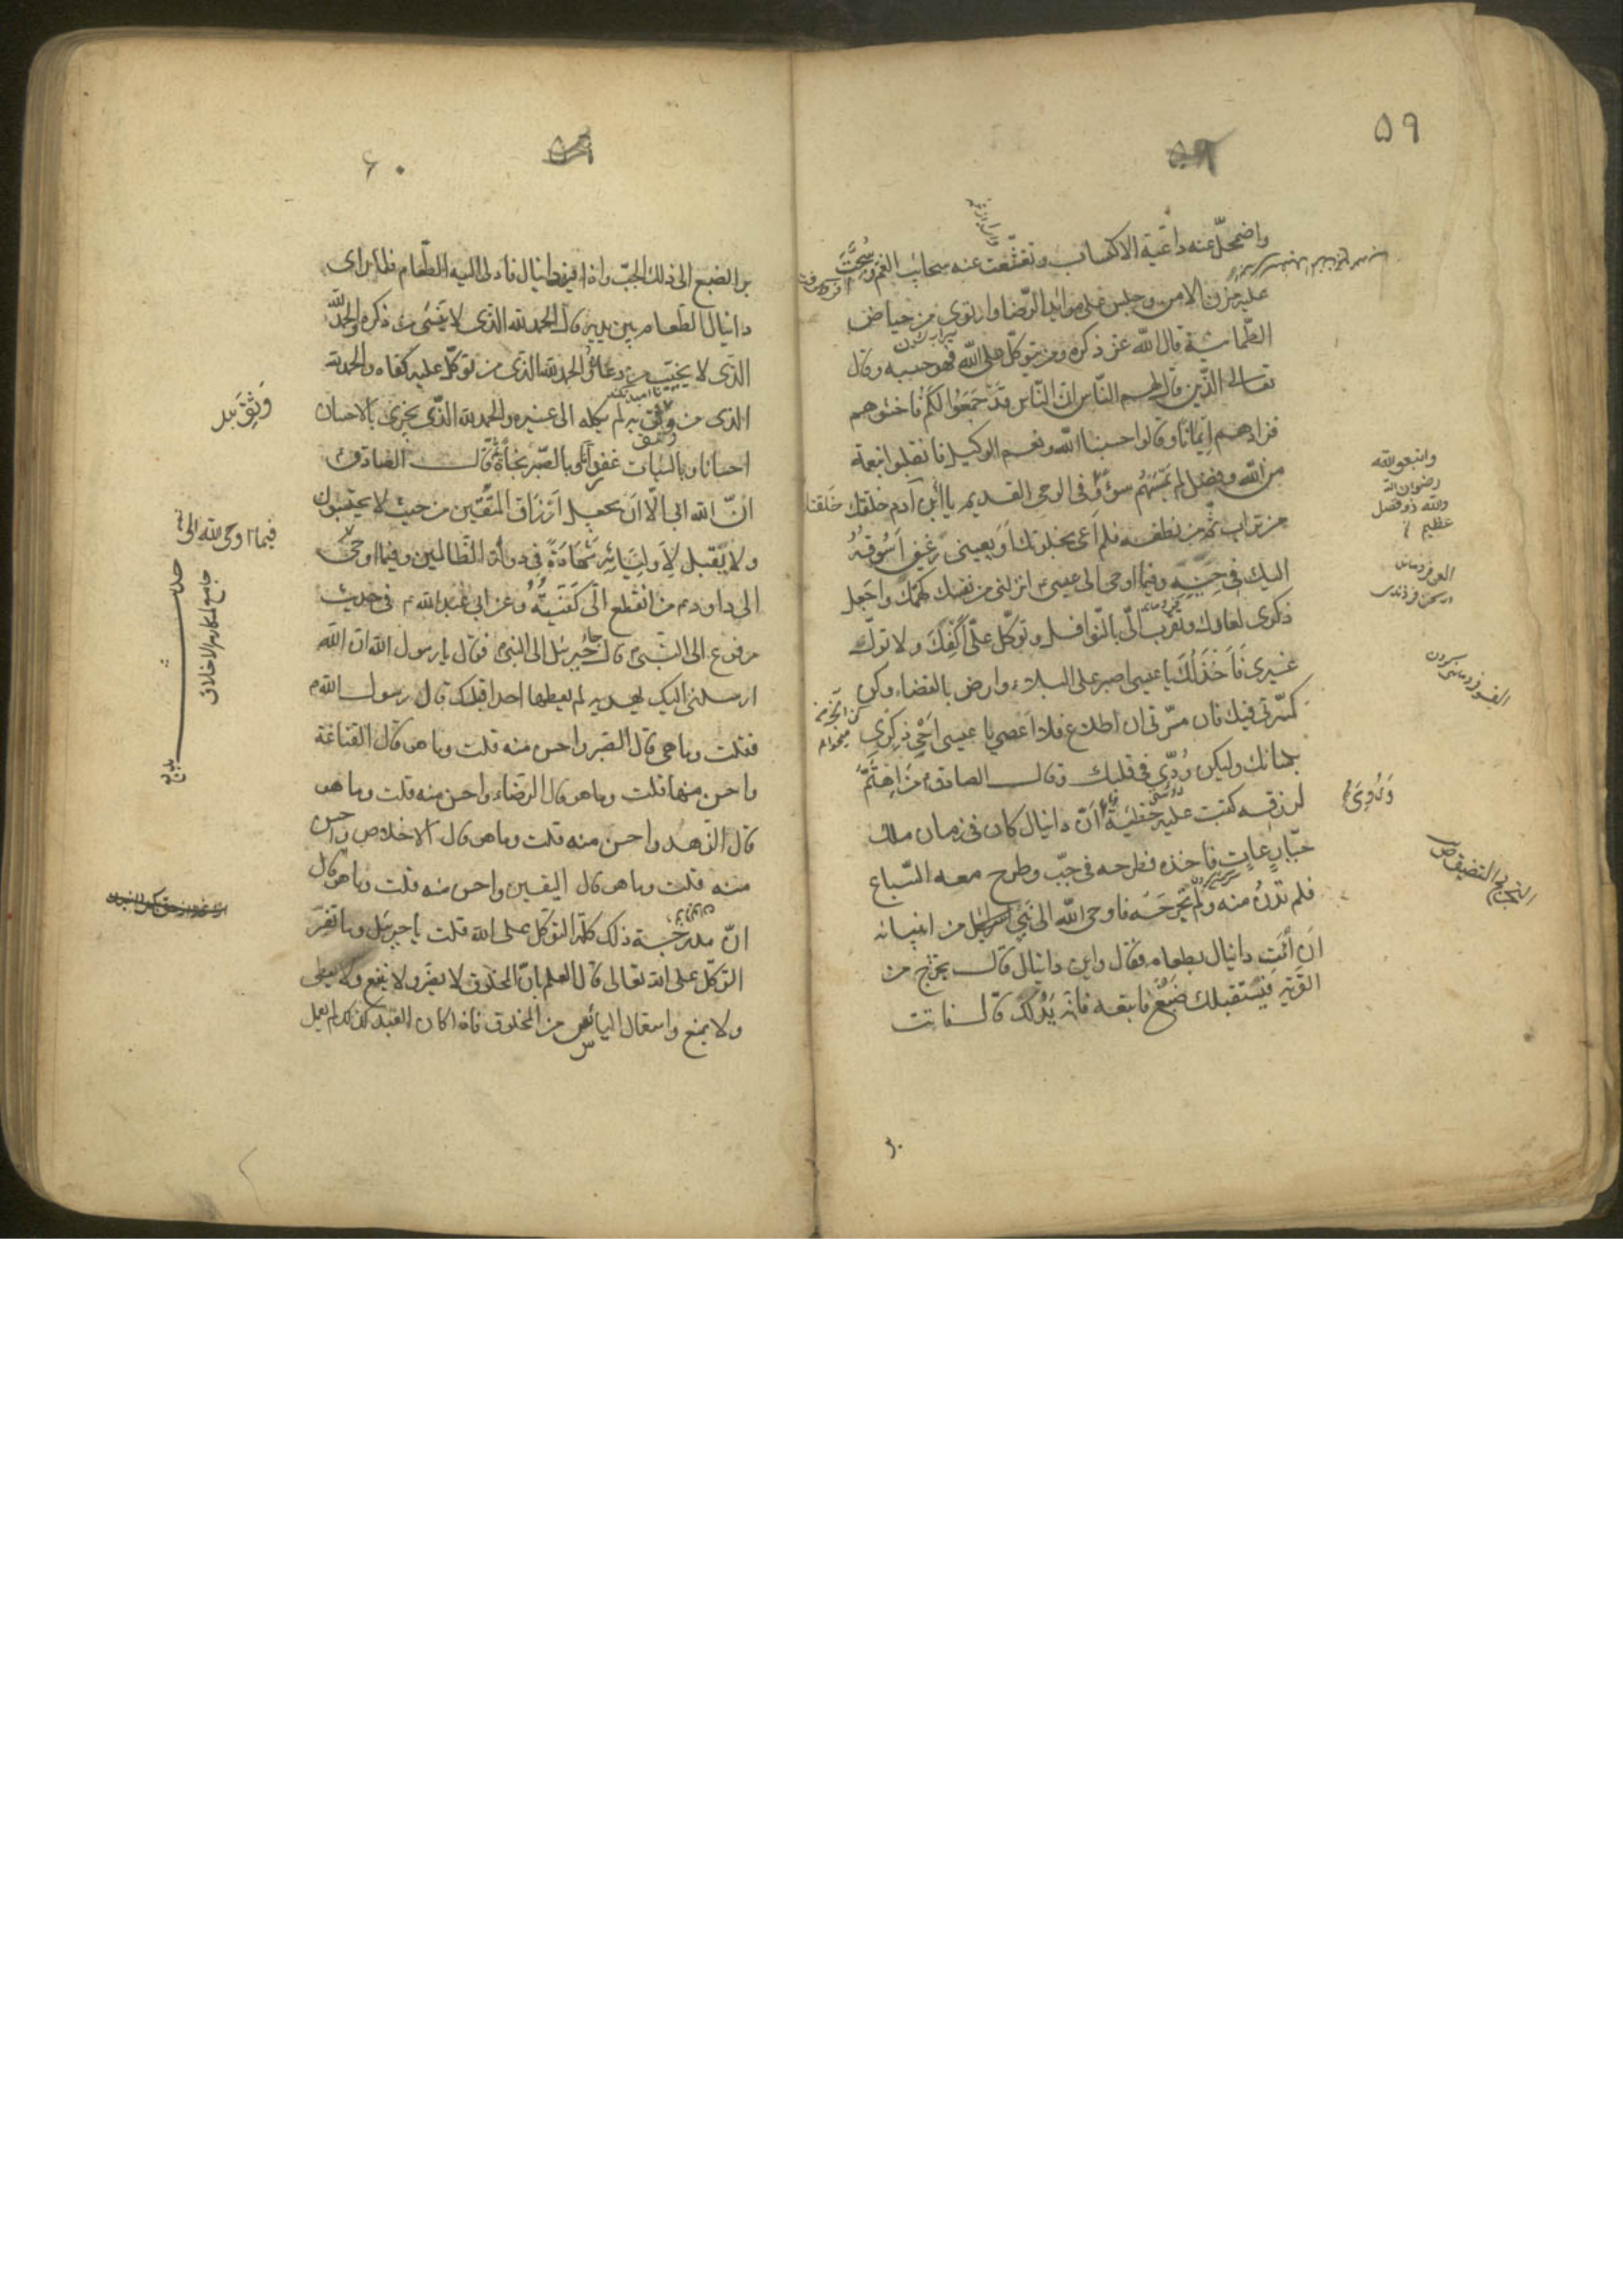 ۵۹
واضمحلّ عنه داعية الاكتساب وتقشّعت عنه سحائب الغمّ وسُحّت
عليه مزن الامن وجلس على موائد الرّضا وارتوى من حياض
الطّمانينة قال اللّه عزّ ذكره ومن يتوكّل على اللّه فهو حسبه وقال
تعالى الذّين قال لهم النّاس انّ النّاس قَدْ جَمَعُوا لَكُمْ فاخشوهم
فزادهم اِيمَانًا وقالوا حسبنا اللّه ونعم الوكيل فانقلبوا بنعمة
من اللّه وفضل لم يَمْسَسْهُم سوءٌ وفى الوحى القديم يا ابن آدم خلقتك
من تراب ثمّ من نطفه فلم اَعْىَ بخلقك اَوَ يعيينى رَغِيفٌ اَسُوقُهُ
اليك فى حِينِهِ وفيما اوحى الى عيسىٰ انزلنى من نفسك كهمّك واجعل
ذكرى لمعادك وتقرّب الىّ بالنّوافل وتوكّل علىّ اَكْفِكَ ولا تولّ
غيرى فَاَخْذُلَكَ يا عيسى اصبر على البلاء وارض بالقضاء وكن
كمسرّتى فيك فان مسرّتى ان اطاع فلا اعصى يا عيسى اَحْىِ ذِكْرِى
بلسانك وليكن وُدّى فى قلبك وقال الصادق من اِهْتَمَّ
لرزقه كتبت عليه خَطِيئَةٌ اَنّ دانيال كان فى زمان ملك
جبّارٍ عَاتٍ فاخذه فطرحه فى جبّ وطرح معه السّباع
فلم تَدْنُ منه ولم تَجْرَحْه فاوحى اللّه الى نَبِىٍّ من انبيائه
اَن اْئَتِ دانيال بطعام فقال واين دانيال قال تخرج من
القَرْيَةِ فَيَسْتَقبلك ضَبُعٌ فاتبعه فانّه يَدُلّكَ قال فاتت
واتبعو اللّه
رضوان اللّه
واللّه ذو فضل
عظيم
وَرُوِىَ
۶۰
به الضبع الى ذلك الجبّ واذا فيه دانيال فادلى اليه الطّعام فلمّا راى
دانيال الطعام بين يديه قال الحمد للّه الذى لا يَنْسى من ذكره والحمد للّه
الذى لا يخيّب من دعاه والحمد للّه الذى من توكّل عليه كفاه والحمد للّه
الذى من وثق به لم يكله الى غيره والحمد للّه الذّى يجزى بالاحسان
احسانا وبالسّيئات غفرانا وبالصّبر نجاةً ثمّ قال الصّادق
انّ اللّه ابى الّا اَن يجعل اَرْزَاقَ المتّقين من حيث لا يحتسبون
ولا يُقبل لِاَوليَائِهِ شَهَادَةً فِى دولة الظّالمين وفيما اوحى
الى داود من انقطع الىّ كَفَيتُهُ وعن ابى عبد اللّه فى حديث
مرفوع الى النّبى قال جاء جبرئيل الى النبىّ فقال يا رسول اللّه انّ اللّه
ارسلنى اليك بهديه لم يعطها احدا قبلك قال رسول اللّه
فقلت وما هى قال الصّبر واحسن منه قلت وما هو قال القناعة
واحسن منها قلت وما هو قال الرّضاء واحسن منه قلت وما هو
قال الزّهد واحسن منه قلت وما هو قال الاخلاص واحسن
منه قلت وما هو قال اليقين واحسن منه قلت وما هو قال
انّ مدرجة ذلك كلّه التوكّل على اللّه قلت يا جبرئيل وما تفسير
التوكّل على اللّه تعالى قال العلم بانّ المخلوق لا يضرّ ولا ينفع ولا يعطى
ولا يمنع واستعمال اليائس من المخلوق فاذا كان العبد كذلك لم يعمل
وَثِقَ بهِ
فيما اوحى اللّه الى
حديث
جامع لمكارم الاخلاق